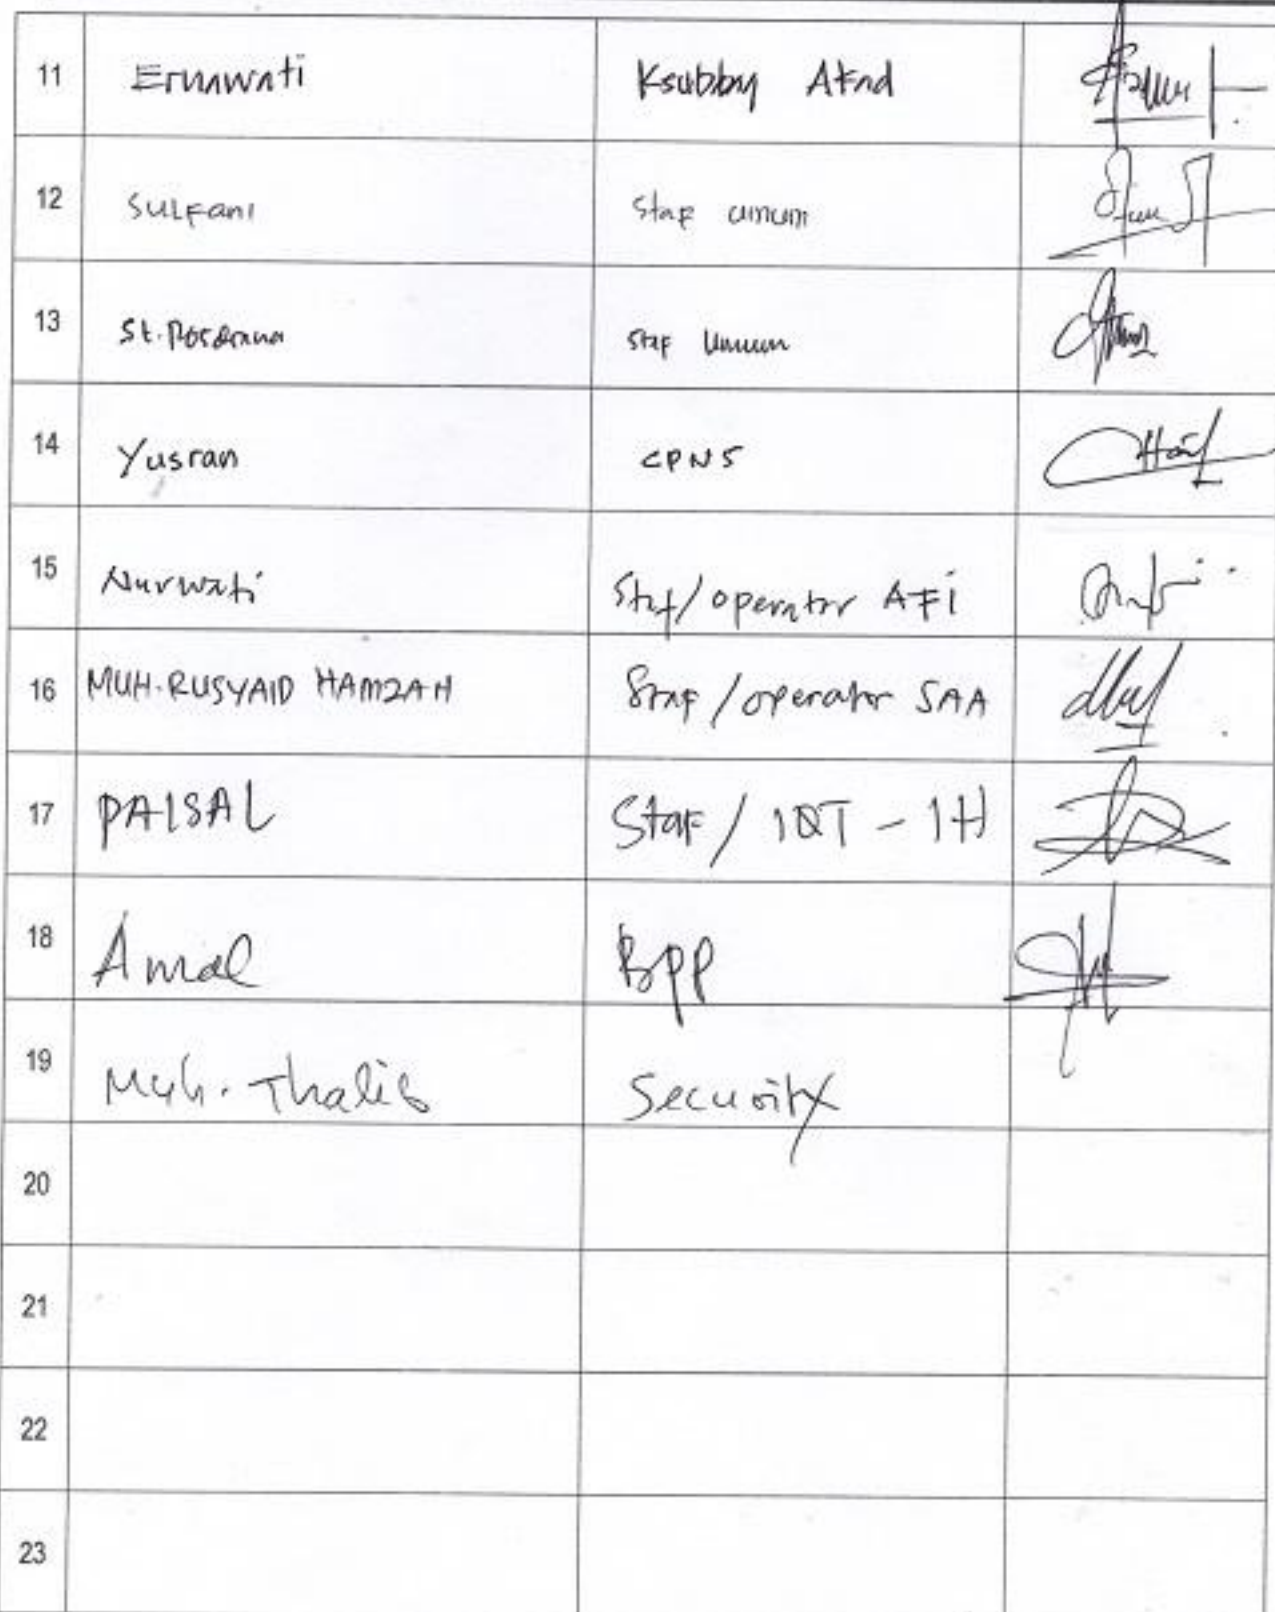 11 Ernawati Ksubbag Akad
12 Sulfani Staf umum
13 St. Staf Umum
14 Yusran CPNS
15 Nurwati Staf/operator AFI
16 MUH. RUSYAID HAMZAH Staf/operator SAA
17 PAISAL Staf/IQT-IH
18 Amal BPP
19 Muh. Thalib Security
20
21
22
23